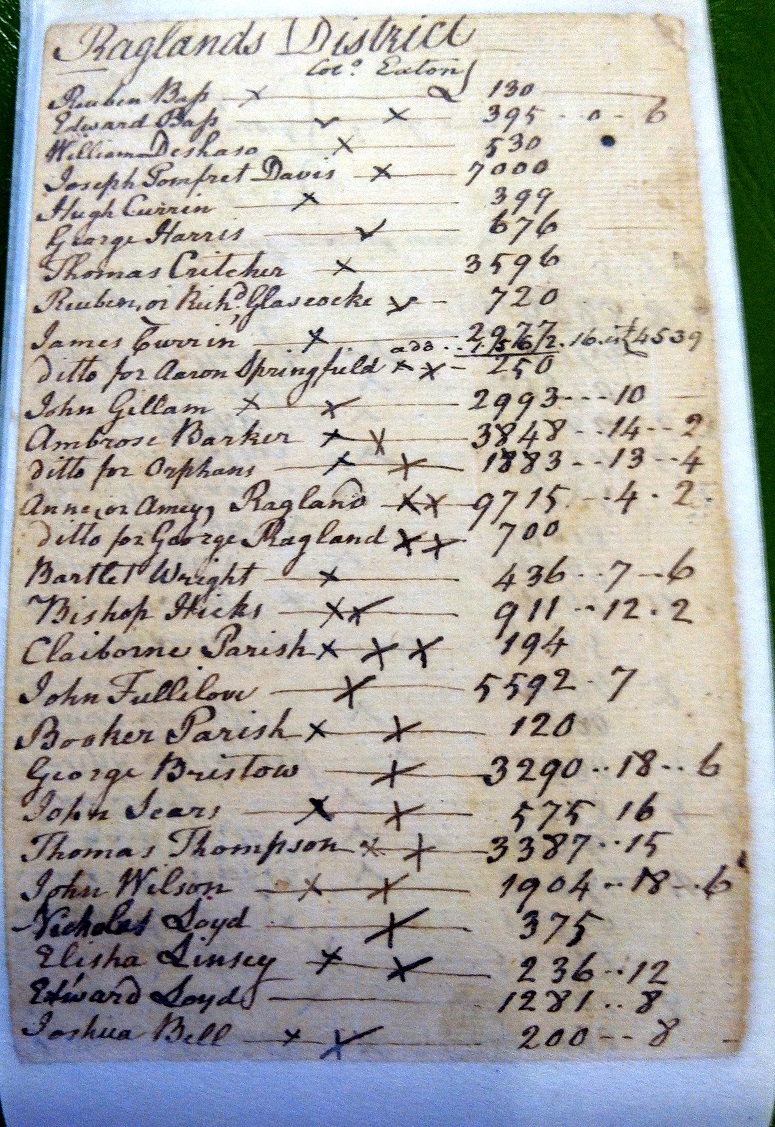 Raglands District
Colo. Eaton
Reuben Bass x 130
Edward Bass x 395 - 0 - 6
William Deshaso x 530
Joseph Pomfret Davis x 7000
Hugh Currin x 399
George Harris 676
Thomas Critcher x 3596
Reuben, or Richd. Glascocke 720
James Currin x 2977
add 1562.16 is 4539
ditto for Aaron Springfield x x 250
John Gillam x x 2993 - - - 10
Ambrose Barker x x 3848 - - 14 - - 2
ditto for Orphans x x 1883 - - 13 - - 4
Anne, or Amey, Ragland x x 9715 - - 4 - 2
ditto for George Ragland x x 700
Bartlet Wright x 436 - - 7 - 6
Bishop Hicks x x 911 - - 12 . 2
Claiborne Parish x x x 194
John Fullilove x 5592 - 7
Booker Parish x x 120
George Bristow x 3290 - - 18 - - 6
John Sears x x 575 16
Thomas Thompson x x 3387 - - 15
John Wilson x x 1904 - - 18 - - 6
Nicholas Loyd x 375
Elisha Linsey x x 236 - - 12
Edward Loyd 1281 - - 8
Joshua Bell x x 200 - - 8